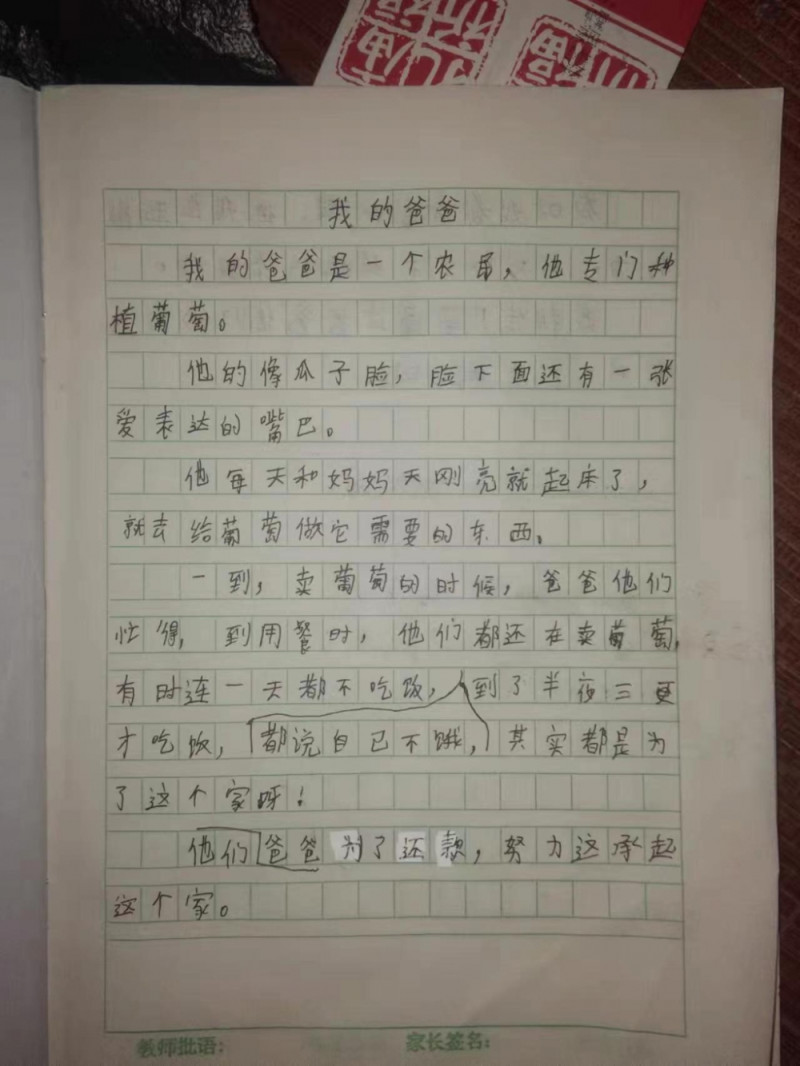 我的爸爸
我的爸爸是一个农民，他专门种
植葡萄。
他的像瓜子脸，脸下面还有一张
爱表达的嘴巴。
他每天和妈妈天刚亮就起床了，
就去给葡萄做它需要的东西。
一到，卖葡萄的时候，爸爸他们
忙得，到用餐时，他们都还在卖葡萄，
有时连一天都不吃饭，到了半夜三更
才吃饭，都说自己不饿，其实都是为
了这个家呀！
他们爸爸为了还款，努力这承起
这个家。
教师批语：
家长签名：